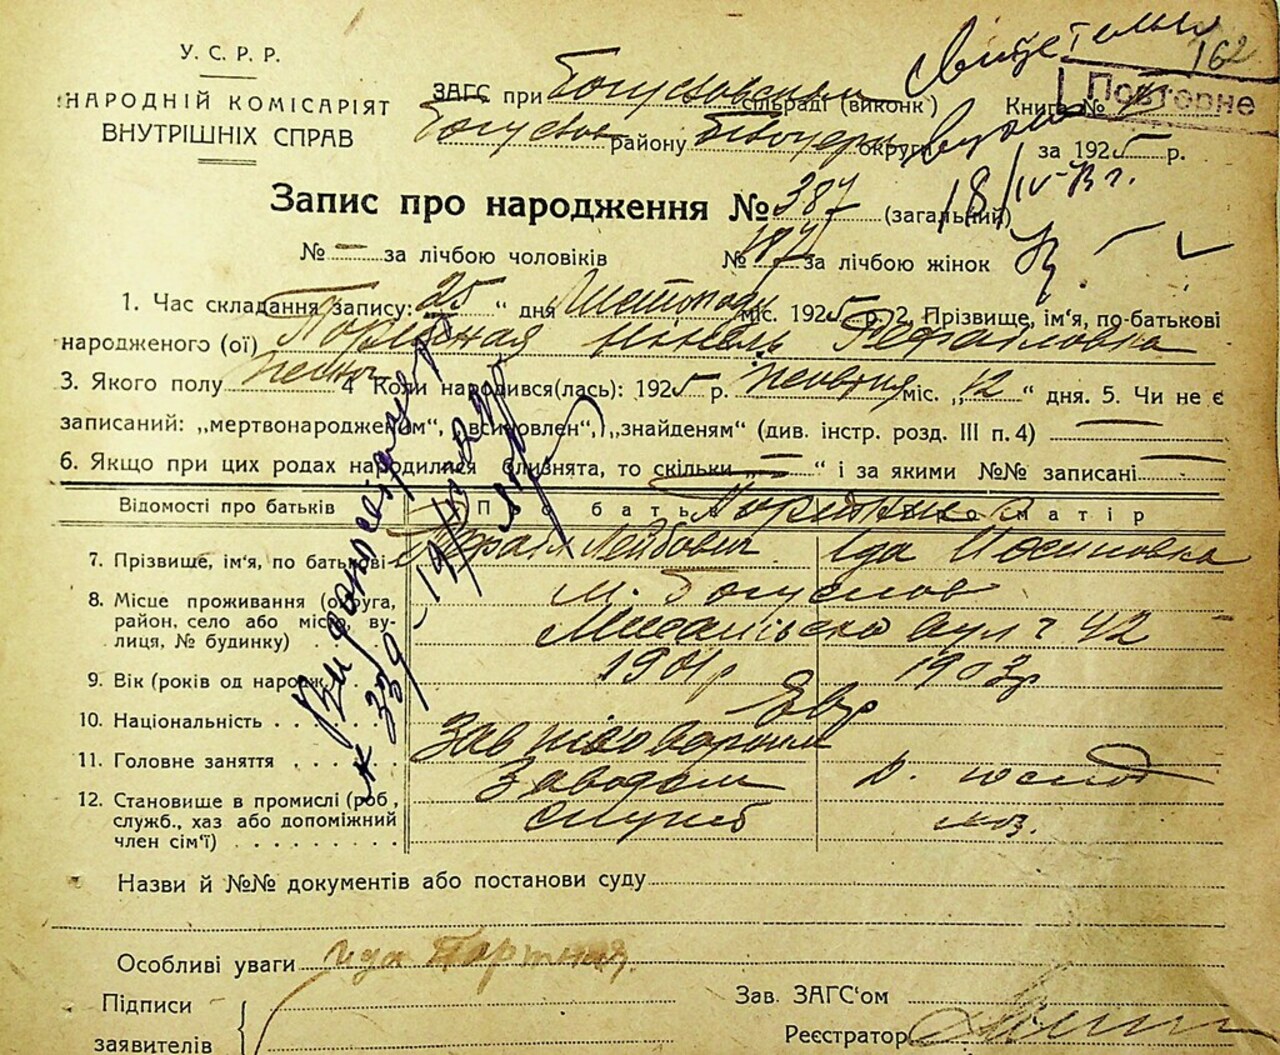 162
У. С. Р. Р.
НАРОДНІЙ КОМІСАРІЯТ
ВНУТРІШНІХ СПРАВ
ЗАГС при Богуславськ сільраді (виконк) Книга №
Повторне
району округи за 1925 р.
Запис про народження № 387 (загальний)
18/IV-73 г.
№ — за лічбою чоловіків № 187 за лічбою жінок
1. Час складання запису: 25 “ дня Листопаду міс. 1925 р. 2. Прізвище, ім'я, по-батькові
народженого (ої) Портная Нінель Рефаіловна
3. Якого полу 4 Коли народився(лась): 1925 р. жовтня міс. „12“ дня. 5. Чи не є
записаний: „мертвонародженом“, „всиновлен“, „знайденям“ (див. інстр. розд. III п. 4)
6. Якщо при цих родах народилися близнята, то скільки „—“ і за якими №№ записані
Відомості про батьків Про батька Про матір
7. Прізвище, ім'я, по батькові Рефаіл Лейбович Іда Йосиповна
8. Місце проживання (округа, район, село або місто, вулиця, № будинку) м. Богуслав
вул ч 42
9. Вік (років од народж. 1901р 1903р
10. Національність Євр
11. Головне заняття Зав пивоварним
Заводом д. господ
12. Становище в промислі (роб, служб., хаз або допоміжний член сім'ї) служб
Назви й №№ документів або постанови суду
Особливі уваги Ида Портная.
Підписи
заявителів
Зав. ЗАГС'ом
Реєстратор